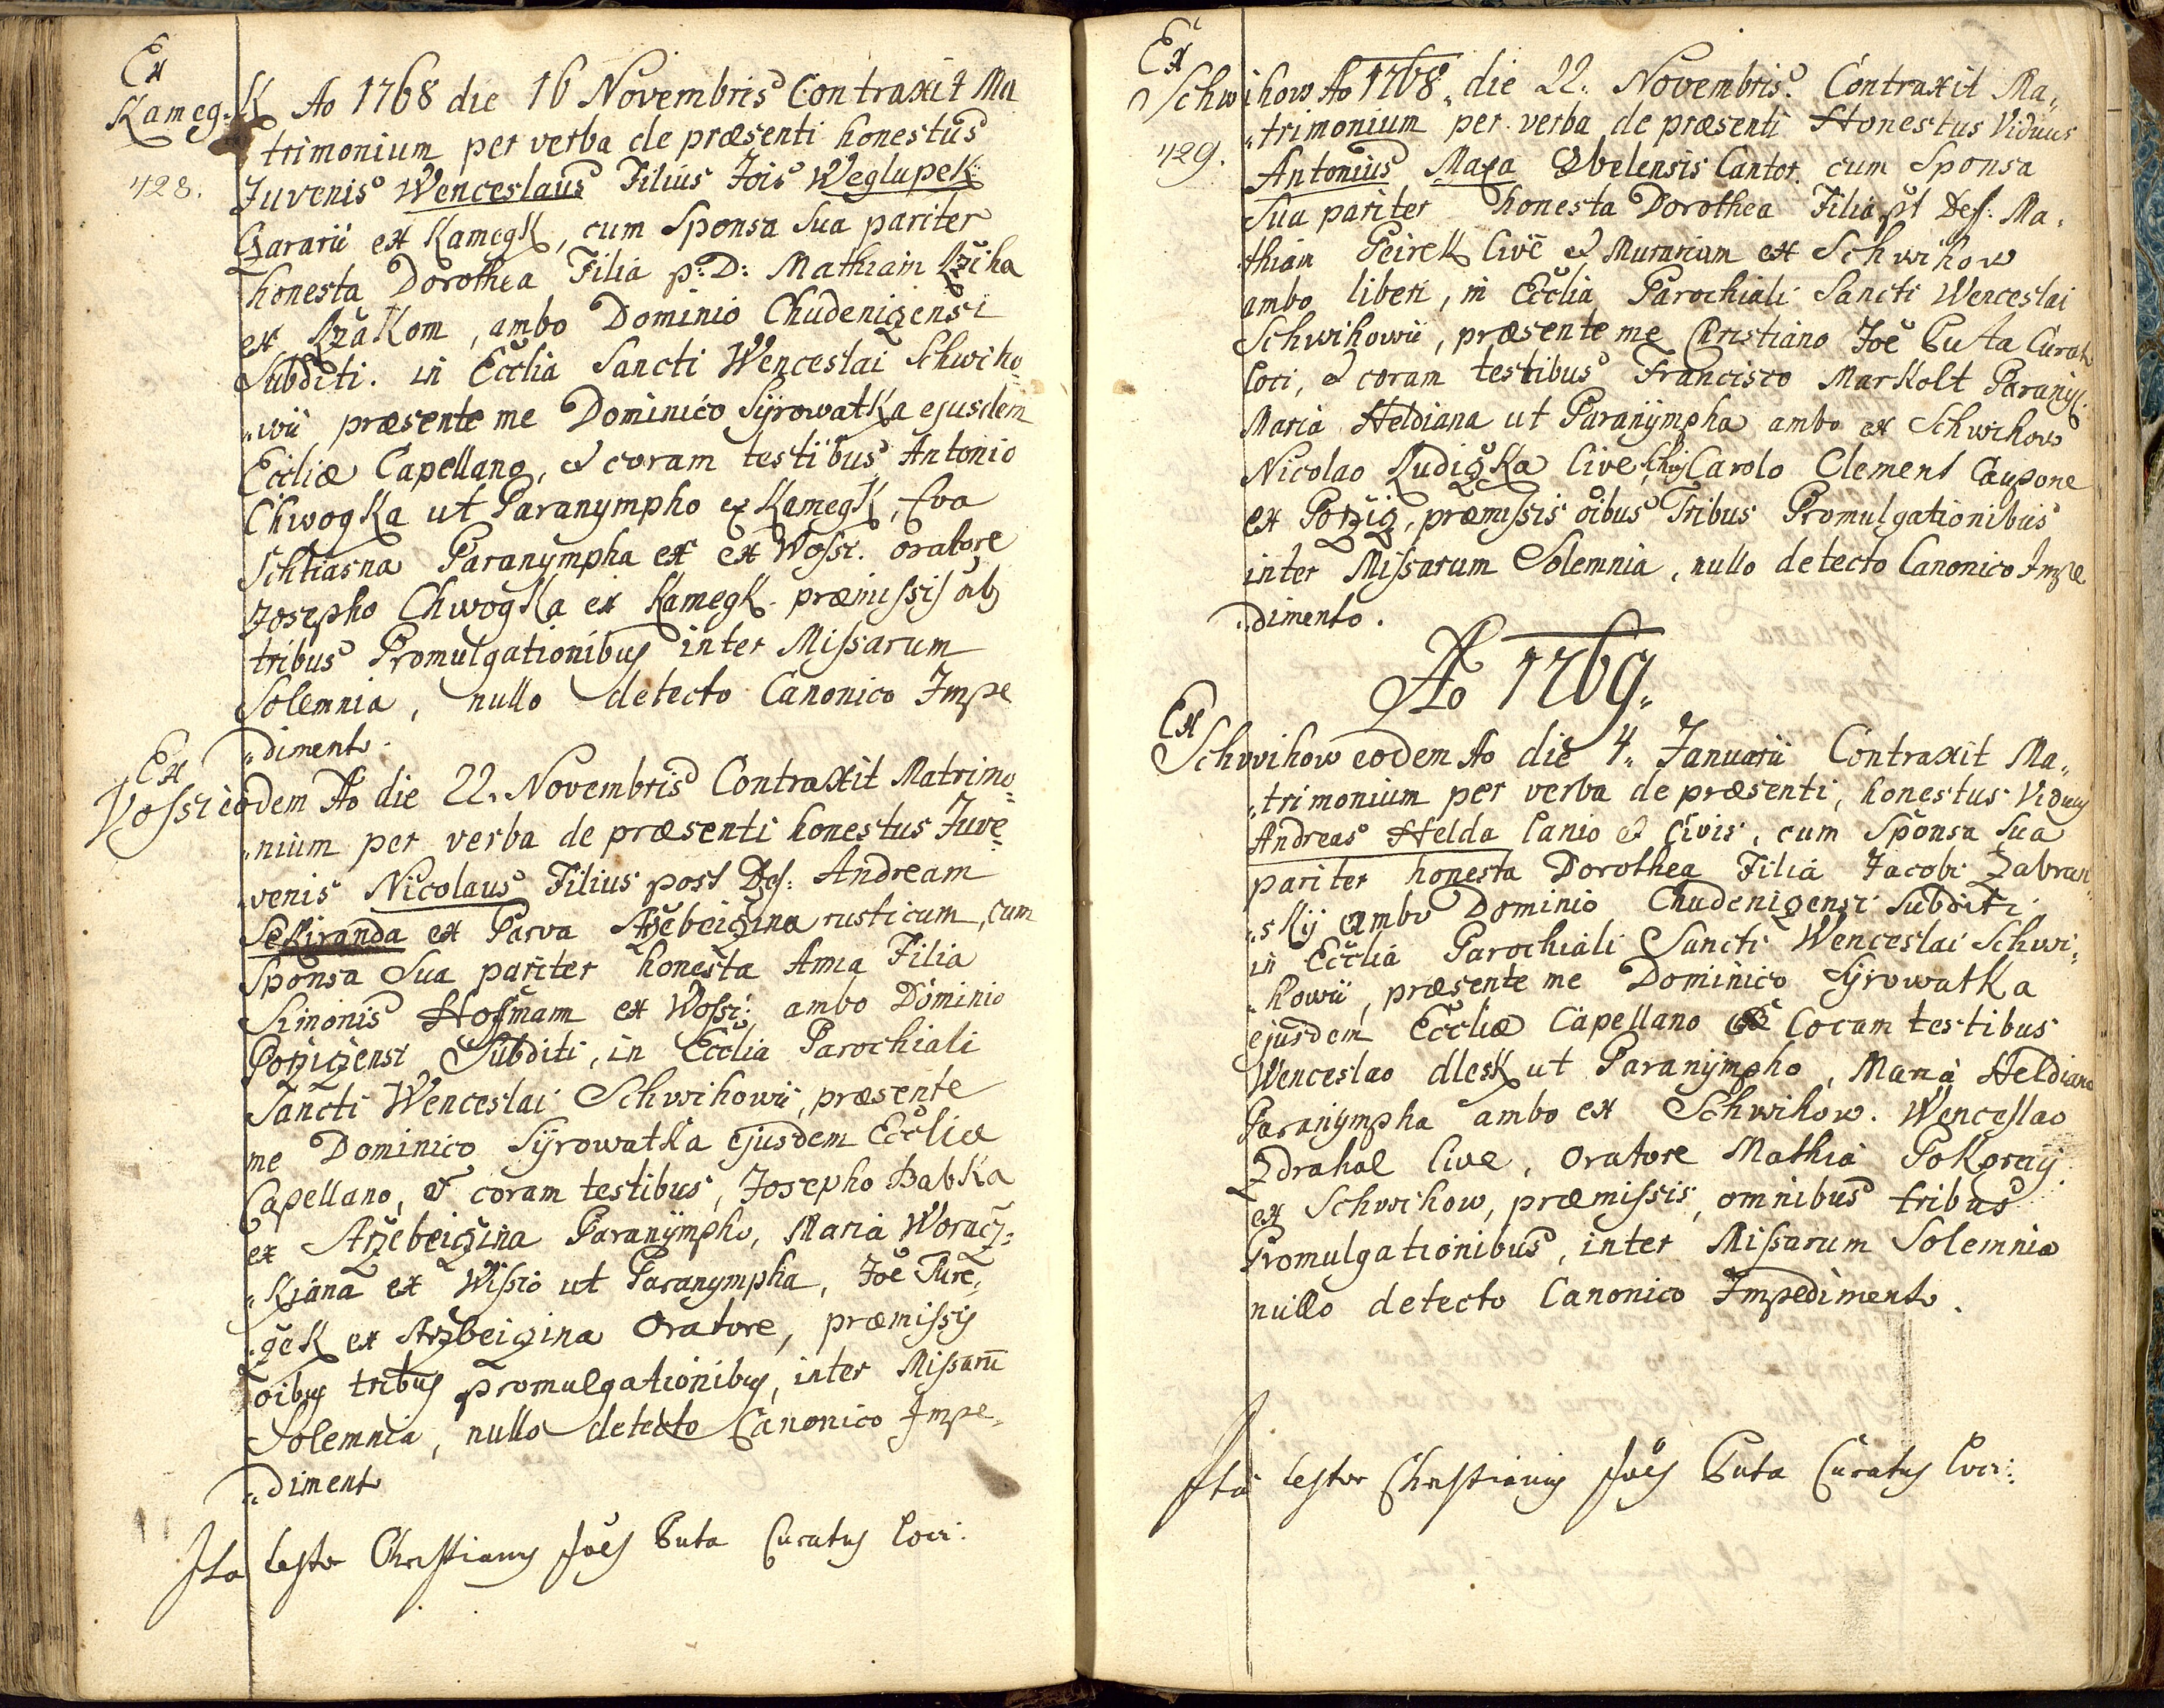 Ex
Kamegk Ao 1768 die 16 Novembris Contraxit Ma
428.
trimonium per verba de præsenti honestus
Juvenis Wenceslaus Filius Jois Weglupek
ex Kamegk, cum Sponsa Sua pariter
honesta Dorothea Filia p: D: Mathiam Rziha
ex Rzakom, ambo Dominio Chudenizensi
Subditi. in Ecclia Sancti Wenceslai Schwiho
„wii præsente me Dominico Syrowatka ejusdem
Eccliæ Capellano, & coram testibus Antonio
Chwogka ut Paranympho ex Kamegk, Eva
Schtiasna Paranympha ex ex Wossi. oratore
Josepho Chwogka ex Kamegk. præmissis
tribus Promulgationibus inter Missarum
Solemnia, nullo detecto Canonico Impe
„dimento.
Ex
Vossi eodem Ao die 22. Novembris Contraxit Matrimo
„nium per verba de præsenti honestus Juve
„venis Nicolaus Filius post Def: Andream
Sekiranda ex Parva Arzebeizina rusticum, cum
Sponsa Sua pariter honesta Anna Filia
Simonis Hofmam ex Wossi; ambo Dominio
Porzizensi Subditi, in Ecclia Parochiali
Sancti Wenceslai Schwihowii, præsente
me Dominico Syrowatka ejusdem Eccliæ
Capellano, & coram testibus, Josepho Babka
ex Arzebeizina Paranympho, Maria Woracz:
„kiana ex Wissio ut Paranympha, Joe Ture,
„zek ex Arzbeizina Oratore, præmissis
oibus tribus promulgationibus, inter Missarū
Solemnia, nullo detecto Canonico Impe„
„diment
Ita testor Christianus Joes Puta Curatus loci:
Ex
Schwihow Ao 1768„ die 22. Novembris. Contraxit Ma„
429.
„trimonium per verba de præsenti Honestus Viduus
Antonius Maxa Cantor. cum Sponsa
Sua pariter honesta Dorothea Filia pt Def: Ma„
„thiam Peirek Cive & Murarium ex Schwihow
ambo liberi, in Ecclia Parochiali Sancti Wenceslai
Schwihowii, præsente me Christiano Joe Puta Curato
loci, & coram testibus Francisco Markolt Paranÿ.
Maria Heldiana ut Paranÿmpha ambo ex Schwihow
Nicolao Ludizka Cive, Carolo Clement Caupone
ex Porziz, præmissis oibus Tribus Promulgationibus
inter Missarum Solemnia, nullo detecto Canonico Impe
„dimento.
Ao 1769.
Ex
Schwihow eodem Ao die 4„ Januarii Contraxit Ma„
„trimonium per verba de præsenti, honestus Viduus
Andreas Helda Lanio & Civis, cum Sponsa Sua
pariter honesta Dorothea Filia Jacobi Zabran„
„skÿ ambo Dominio Chudenizensi Subditi
in Ecclia Parochiali Sancti Wenceslai Schwi„
„howii, præsente me Dominico Sÿrowatka
ejusdem Eccliæ Capellano & Coram testibus
Wenceslao dlesk ut Paranÿmpho, Maria Heldiana
Paranÿmpha ambo ex Schwihow. Wenceslao
Zdrahal Cive, Oratore Mathia Pokornÿ
ex Schwihow, præmissis, omnibus tribus
Promulgationibus, inter Missarum Solemnia
nullo detecto Canonico Impedimento.
Ita testor Christianus Joes Puta Curatus loci: